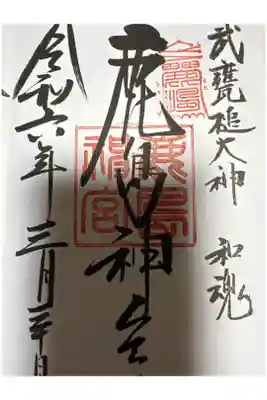 武甕槌大神 和魂
鹿島神宮
鹿島神宮
令和六年 三月二十日